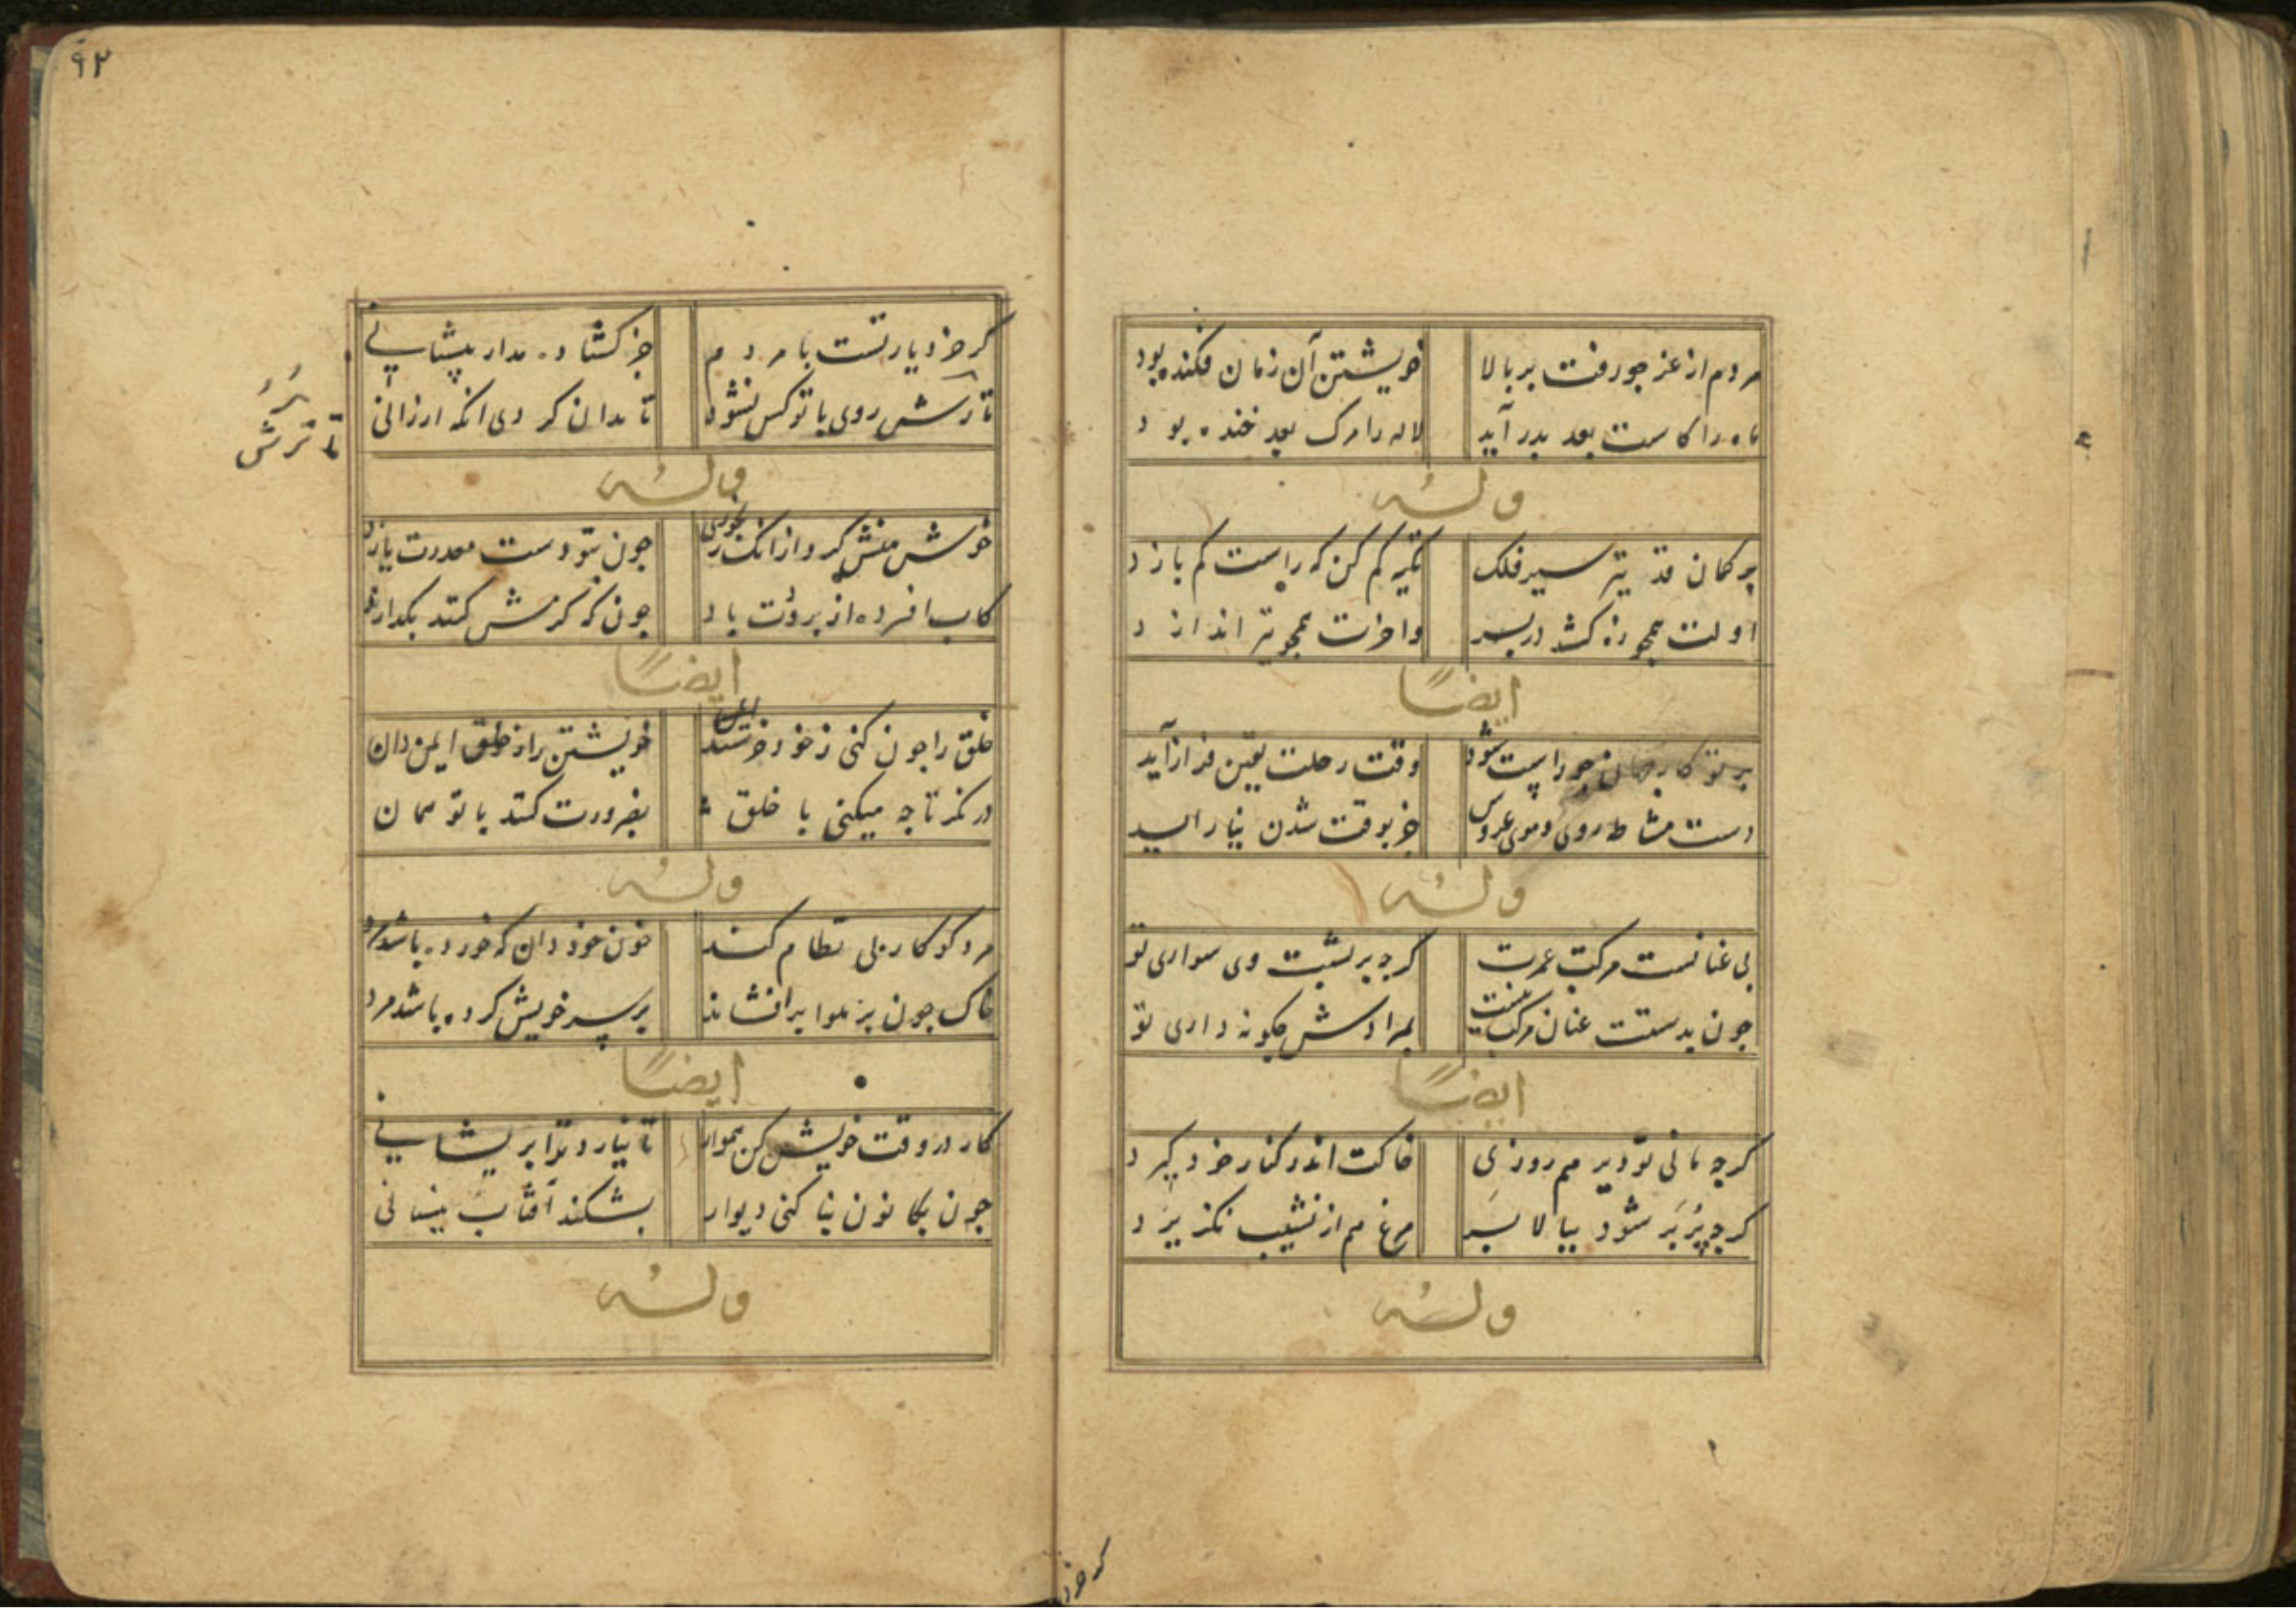 مردم از عز جو رفت بر بالا خویشتن آن زمان فکنده بود
ماه را کاست بعد بدر آید لاله را مرک بعد خنده بود
وله
بر کمان قد تیر سیر فلک تکیه کم کن که راست کم بازد
اولت همجو زه کشد در بر واخرت همجو تیر اندازد
ایضاً
بر تو کار جهان جو راست شود وقت رحلت یقین فراز آید
دست مشاطه روی و موی عروس جز بوقت شدن نیاراید
وله
بی عنانست مرکب عمرت کرجه بر بشت وی سواری تو
جون بدستت عنان مرکب نیست بمرادش جکونه داری تو
ایضاً
کرجه مانی تو دیر هم روزی خاکت اندر کنار خود کیرد
کرجه پُر بَر شود ببالا بَر مرغ هم از نشیب نکزیرد
وله
کر خرد
۹۲
کر خرد یار تست با مردم جز کشاده مدار پیشانی
تا ترش روی با تو کس نشود تا بدان کردی انکه ارزانی
تا ترش
وله
خوش منش کرد از انک رنجوری جون بتو دست معدرت یازد
کاب افسرده از بروُدت باد جون که کرمش کنند بکدازد
ایضاً
خلق را جون کنی ز خود خرسند خویشتن را ز خلق ایمن دان
در نکر تا جه میکنی با خلق بضرورت کنند با تو همان
وله
مرد کو کار بی نظام کند خون خود دان که خورده باشد مرد
خاک جون بر هوا برافشاند بر سر خویش کرده باشد مرد
ایضاً
کار در وقت خویش کن هموار تا نیارد ترا بریشانی
جون بکانون بنا کنی دیوار بشکند آفتاب نیسانی
وله